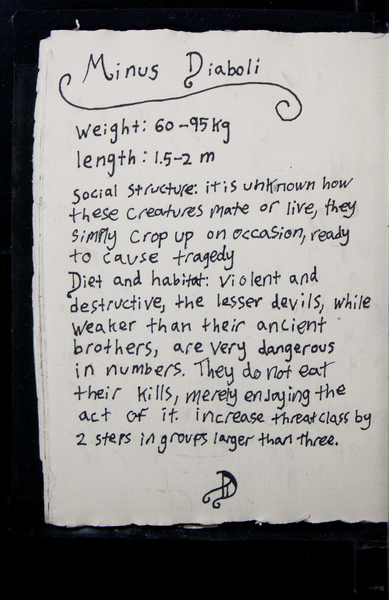 Minus Diaboli
weight: 60-95kg
length: 1.5-2 m
social structure: it is unknown how
these creatures mate or live, they
simply crop up on occasion, ready
to cause tragedy
Diet and habitat: violent and
destructive, the lesser devils, while
weaker than their ancient
brothers, are very dangerous
in numbers. They do not eat
their kills, merely enjoying the
act of it. increase threat class by
2 steps in groups larger than three.